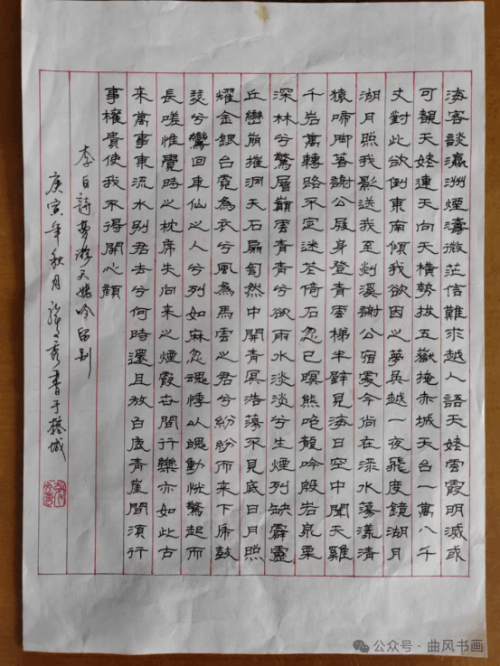 海客談瀛洲煙濤微茫信難求越人語天姥雲霞明滅或
可覩天姥連天向天橫勢拔五嶽掩赤城天台一萬八千
丈對此欲倒東南傾我欲因之夢吳越一夜飛度鏡湖月
湖月照我影送我至剡溪謝公宿處今尚在淥水蕩漾清
猿啼脚著謝公屐身登青雲梯半壁見海日空中聞天雞
千岩萬轉路不定迷花倚石忽已暝熊咆龍吟殷岩泉栗
深林兮驚層巔雲青青兮欲雨水淡淡兮生煙列缺霹靂
丘巒崩摧洞天石扇訇然中開青冥浩蕩不見底日月照
耀金銀台霓為衣兮風為馬雲之君兮紛紛而來下虎鼓
瑟兮鸞回車仙之人兮列如麻忽魂悸以魄動怳驚起而
長嗟惟覺時之枕席失向來之煙霞世間行樂亦如此古
來萬事東流水別君去兮何時還且放白鹿青崖間須行
事權貴使我不得開心顏
李白詩夢游天姥吟留別
庚寅年秋月 書于 城
公众号·曲风书画